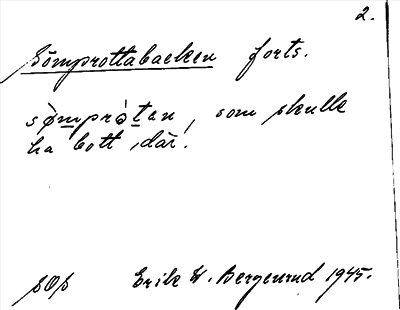 2.
Sömprottabacken forts.
sø̀mprȯ̀tan, som skulle
ha bott där.
SOS Erik W. Bergenrud 1945.